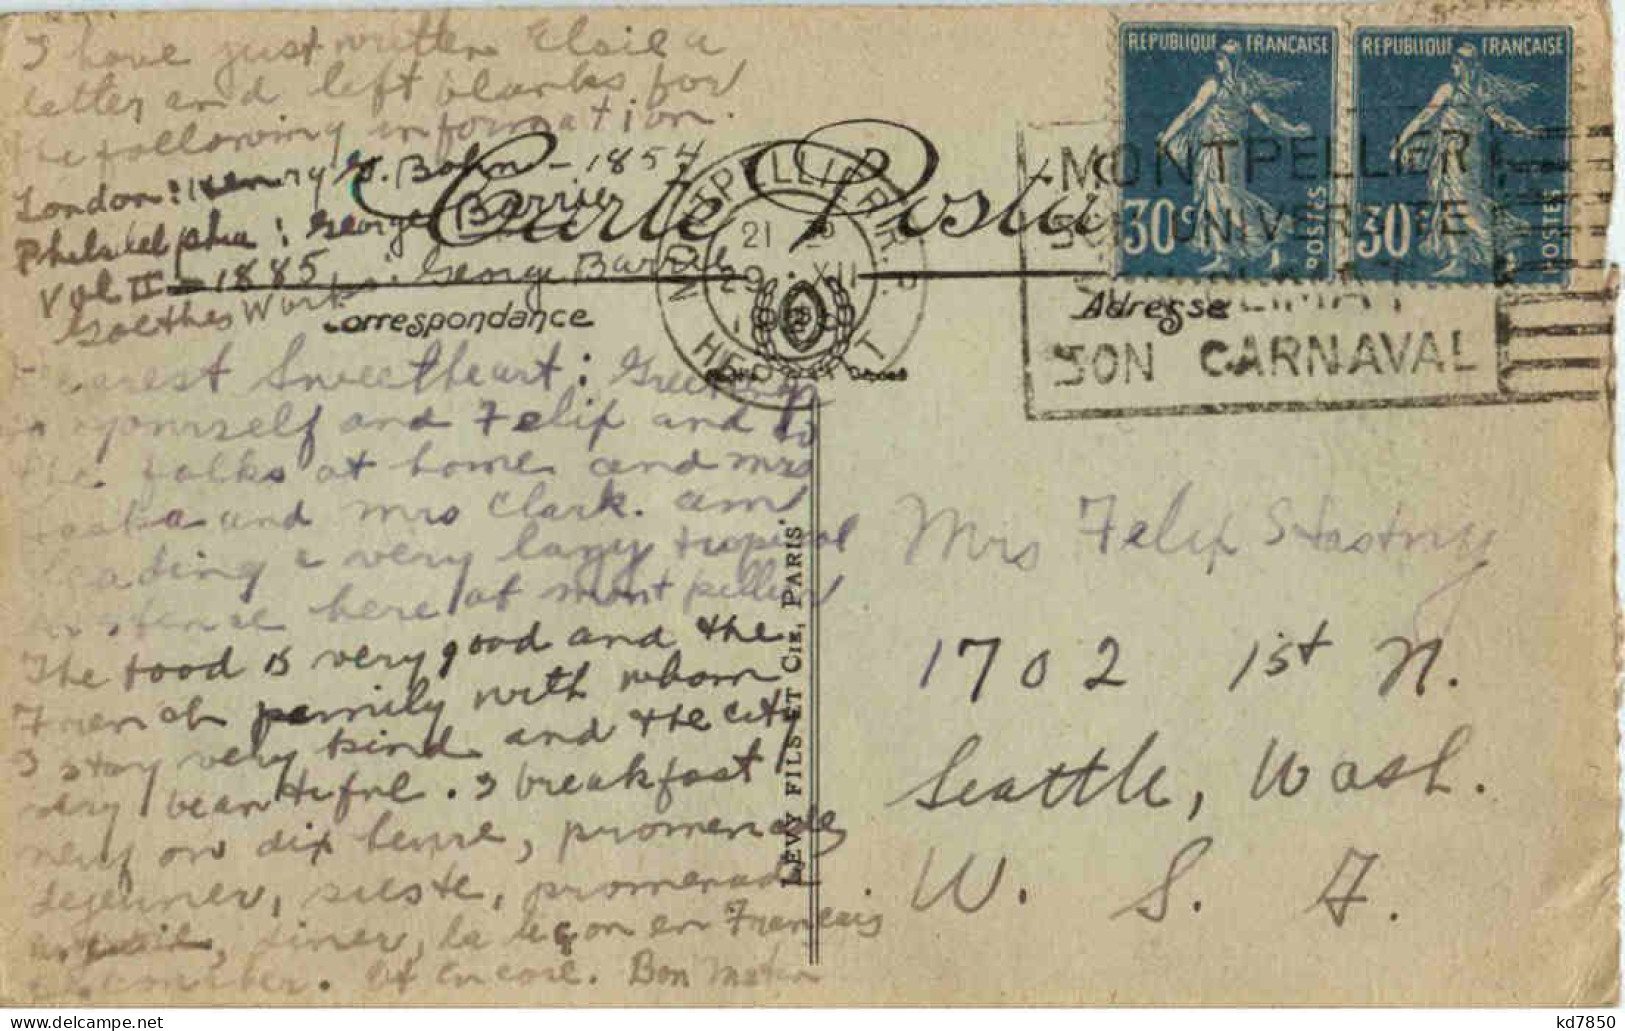 I have just written Elsie a
letter and left blanks for
the following information.
London: Henry G. Bohn - 1854
Philadelphia: George Barrie
Vol II - 1885
Goethes Works: George Barrie
Carte Postale
Correspondance
Adresse
REPUBLIQUE FRANÇAISE
30c POSTES
REPUBLIQUE FRANÇAISE
30c POSTES
MONTPELLIER R.P.
21 29 XII
HERAULT
MONTPELLIER
SON UNIVERSITE
SON CLIMAT
SON CARNAVAL
Dearest Sweetheart: Greetings
to yourself and Felix and to
the folks at home and Mrs
and Mrs Clark. am
leading a very lazy tropical
existence here at Montpellier
The food is very good and the
French family with whom
I stay very kind and the city
very beautiful. I breakfast
neuf ou dix heure, promenade,
dejeuner, sieste, promenade
diner, la leçon en Francais
Et encore. Bon matin
LEVY FILS ET CIE, PARIS.
Mrs Felix Stastny
1702 1st N.
Seattle, Wash.
U. S. A.
kd7850